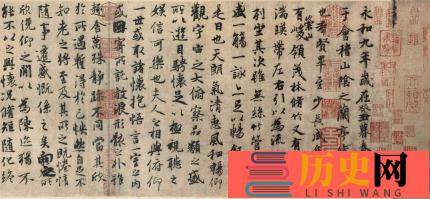 永和九年歲在癸丑暮春
于會稽山陰之蘭亭
也羣賢畢至少長咸
有崇山峻領茂林脩竹又有
湍暎帶左右引以為流
列坐其次雖無絲竹管
盛一觴一詠亦足以暢敘
是日也天朗氣清惠風和暢仰
觀宇宙之大俯察品類之盛
所以遊目騁懷足以極視聽之
娛信可樂也夫人之相與俯仰
一世或取諸懷抱悟言一室之內
或因寄所託放浪形骸之外雖
趣舍萬殊靜躁不同當其欣
於所遇暫得於己怏然自足不
知老之將至及其所之既惓情
隨事遷感慨係之矣向之所
欣俛仰之閒以為陳迹猶不
能不以之興懷況脩短隨化終
历史网
LI SHI WANG